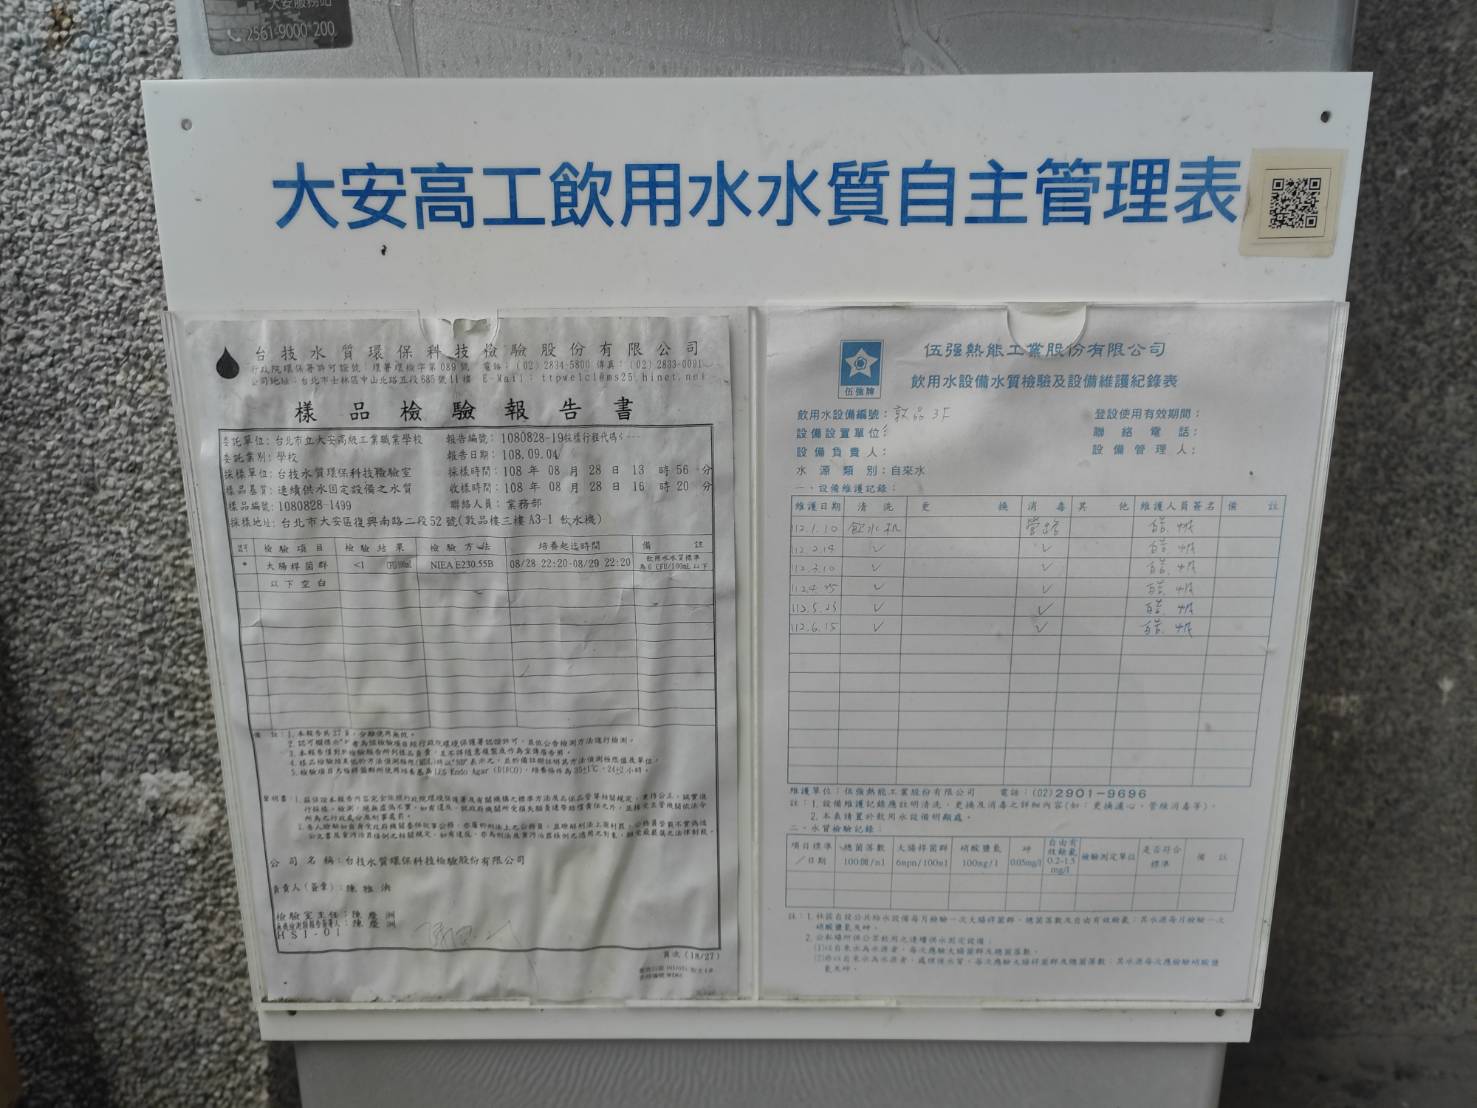 大安服務站
2561-9000*200
大安高工飲用水水質自主管理表
台技水質環保科技檢驗股份有限公司
行政院環保署許可證號：環署環檢字第089號 電話：(02)2834-5800 傳真：(02)2833-0091
公司地址：台北市士林區中山北路五段585號11樓 E-Mail：ttpwelcl@ms25.hinet.net
樣品檢驗報告書
委託單位：台北市立大安高級工業職業學校 報告編號：1080828-19採樣行程代碼
委託業別：學校 報告日期：108.09.04
採樣單位：台技水質環保科技檢驗室 採樣時間：108 年 08 月 28 日 13 時 56 分
樣品基質：連續供水固定設備之水質 收樣時間：108 年 08 月 28 日 16 時 20 分
樣品編號：1080828-1499 聯絡人員：業務部
採樣地址：台北市大安區復興南路二段52號(敦品樓三樓 A3-1 飲水機)
檢驗項目 檢驗結果 檢驗方法 培養起迄時間 備註
* 大腸桿菌群 <1 CFU/100mL NIEA E230.55B 08/28 22:20-08/29 22:20 飲用水水質標準
為6 CFU/100mL以下
以下空白
備註：1.本報告共27頁，分離使用無效。
公司名稱：台技水質環保科技檢驗股份有限公司
負責人(簽章)：陳雅
檢驗室主任：陳慶洲
陳慶洲
HSI-01
頁次(18/27)
伍強牌
伍强熱能工業股份有限公司
飲用水設備水質檢驗及設備維護紀錄表
飲用水設備編號：敦品 3F 登設使用有效期間：
設備設置單位： 聯絡電話：
設備負責人： 設備管理人：
水源類別：自來水
一、設備維護記錄：
維護日期 清洗 更換 消毒 其他 維護人員簽名 備註
112.1.10 飲水机 管路
112.2.14 ✓ ✓
112.3.10 ✓ ✓
112.4. ✓ ✓
112.5.23 ✓ ✓
112.6.15 ✓ ✓
維護單位：伍強熱能工業股份有限公司 電話：(02)2901-9696
註：1.設備維護記錄應註明清洗、更換及消毒之詳細內容(如：更換濾心、管線消毒等)。
2.本表請置於飲用水設備明顯處。
二、水質檢驗記錄：
項目標準／日期 總菌落數 100個/ml 大腸桿菌群 6mpn/100ml 硝酸鹽氮 100mg/l 砷 0.05mg/l 自由有效餘氯 0.2-1.5 mg/l 檢驗測定單位 是否符合標準 備註
註：1.社區自設公共給水設備每月檢驗一次大腸桿菌群、總菌落數及自由有效餘氯；其水源每月檢驗一次
硝酸鹽氮及砷。
2.公私場所供公眾飲用之連續供水固定設備：
(1)以自來水為水源者，每次應驗大腸菌群及總菌落數。